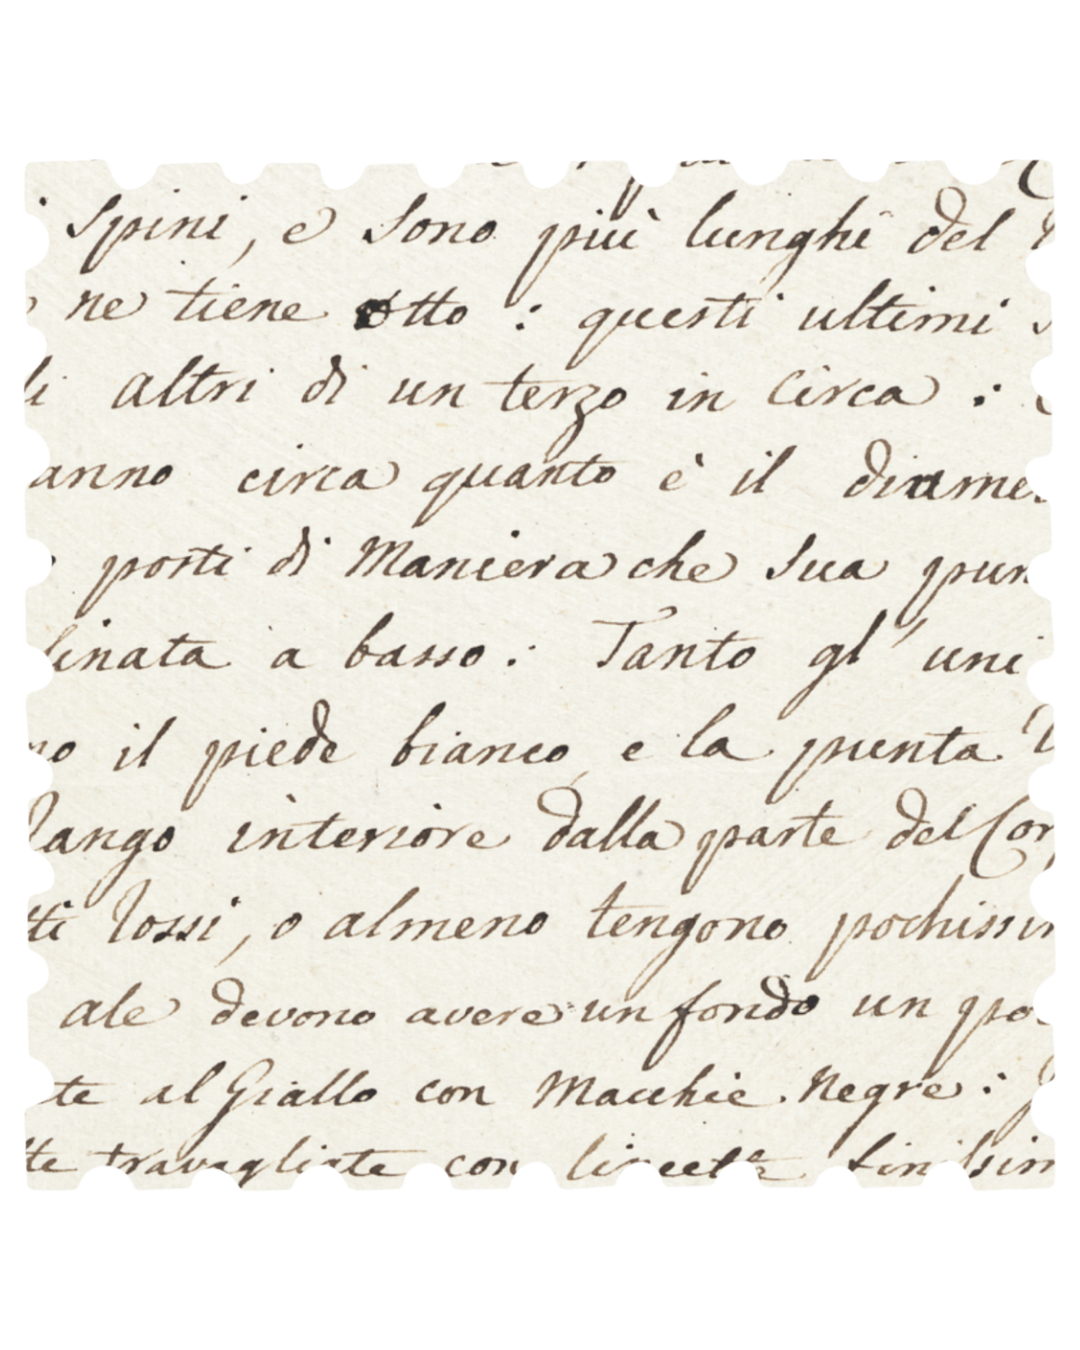 Spini, e Sono più lunghi del
ne tiene otto : questi ultimi
li altri di un terzo in Circa :
anno circa quanto è il diame
posti di Maniera che Sua pun
linata a basso : Tanto gl' uni
no il piede bianco, e la punta
Rango interiore dalla parte del Cor
tti Rossi, o almeno tengono pochissi
ale devono avere un fondo un po
te al Giallo con Macchie Negre :
tte travagliate con